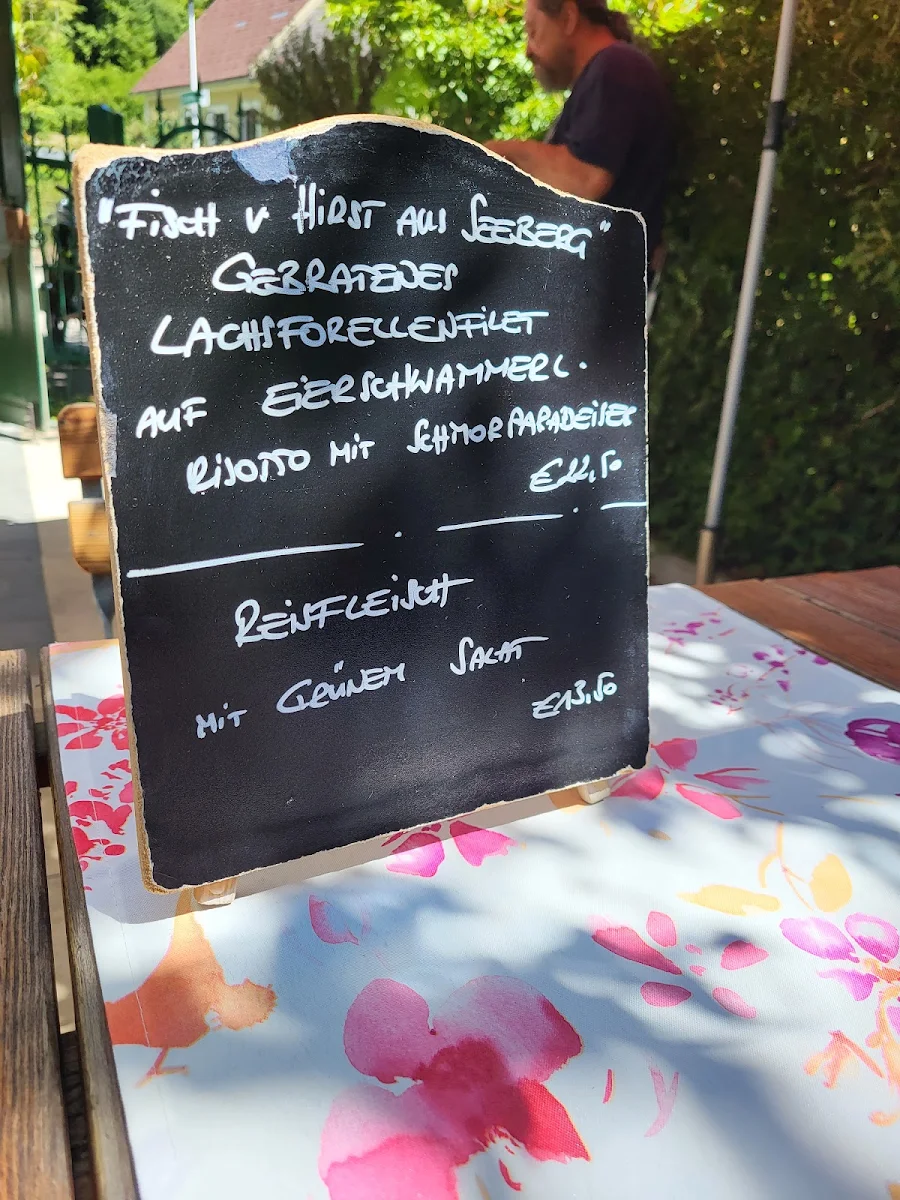 "FiSCH v HiRST AUS SEEBERG"
GEBRATENES
LACHSFORELLENFiLET
AUF EiERSCHWAMMERL.
RiSOTTO MiT SCHMORPARADEiSER
€22,50
REiNFLEiSCH
MiT GRÜNEM SALAT
€13,50